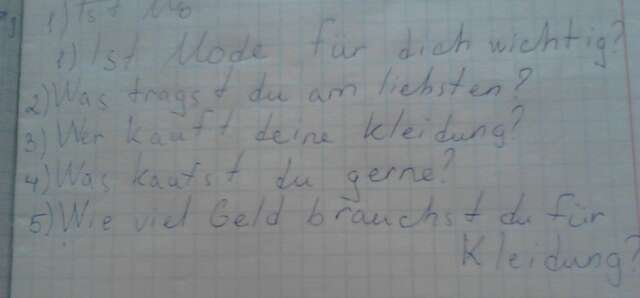 1) Ist Mo
1) Ist Mode für dich wichtig?
2) Was tragst du am liebsten?
3) Wer kauft deine kleidung?
4) Was kaufst du gerne?
5) Wie viel Geld brauchst du für
Kleidung?